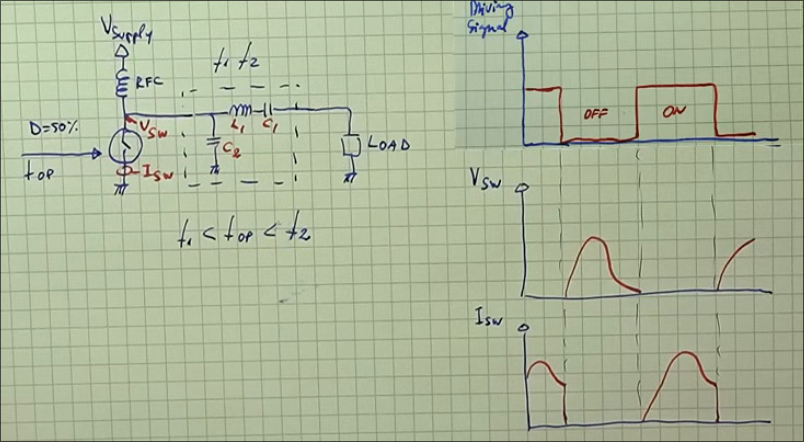 Vsupply
RFC
f1 f2
D=50%
Vsw
L1 C1
C2
LOAD
fop
Isw
f1 < fop < f2
Driving
Signal
OFF
ON
Vsw
Isw